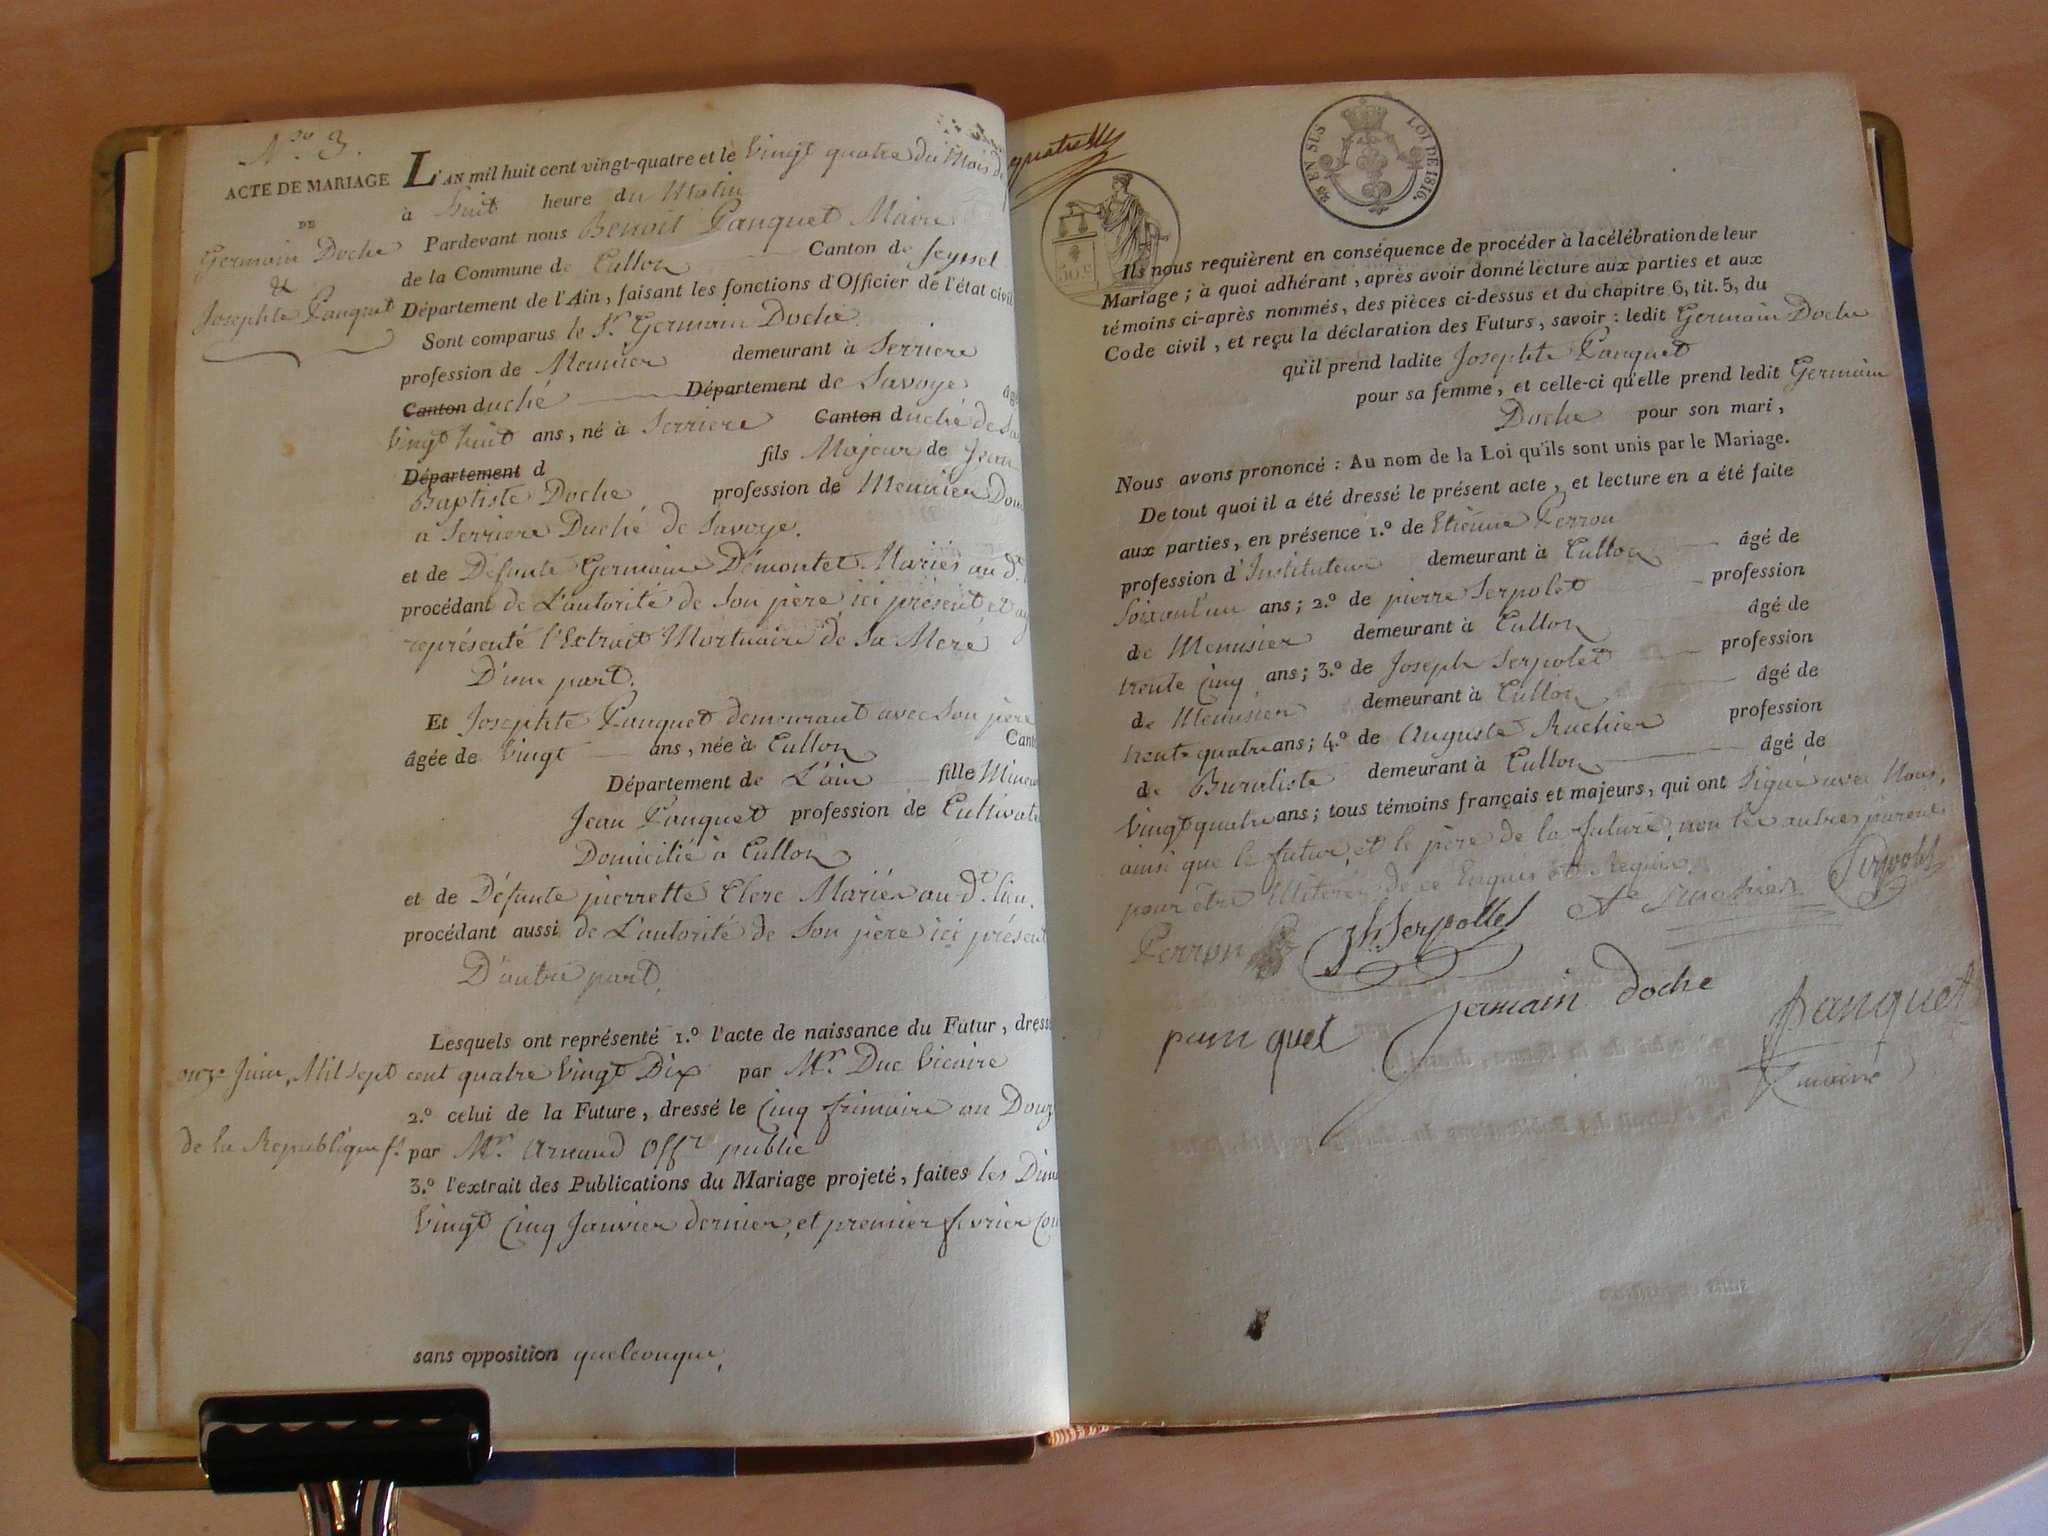 N.ro 3.
ACTE DE MARIAGE
DE
Germain Doche
&
Josephte Panquet
L'AN mil huit cent vingt-quatre et le Vingt quatre du Mois de
à huit heure du Matin
Pardevant nous Benoit Panquet Maire
de la Commune de Culloz Canton de Seyssel
Département de l'Ain, faisant les fonctions d'Officier de l'état civil
Sont comparus le Sr. Germain Doche
profession de Meunier demeurant à Serriere
Canton duché Département de Savoye âgé
Vingt huit ans, né à Serriere Canton duché de Sa
Département d fils Majeur de Jean
Baptiste Doche profession de Meunier Dom
à Serriere Duché de Savoye.
et de Défunte Germaine Démontet Mariés au d.t
procédant de L'autorité de Son père ici présent et ay
représenté l'Extrait Mortuaire de Sa Mere
D'une part.
Et Josephte Panquet demeurant avec Son père
âgée de Vingt ans, née à Culloz Cant
Département de L'ain fille Mineure
Jean Panquet profession de Cultivate
Domicilié à Culloz
et de Défunte pierrette Clerc Mariés au d.t lieu.
procédant aussi de L'autorité de Son père ici présent
D'autre part.
Lesquels ont représenté 1.º l'acte de naissance du Futur, dressé
onze Juin, Mil Sept cent quatre Vingt Dix par Mr. Duc Vicaire
2.º celui de la Future, dressé le Cinq frimaire an Douz
de la Republique f.se par Mr. Arnaud Offr. public
3.º l'extrait des Publications du Mariage projeté, faites les Dima
Vingt Cinq Janvier dernier, et premier fevrier Cou
sans opposition quelconque,
quatrelle
28 EN SUS LOI DE 1816.
50 c
Ils nous requièrent en conséquence de procéder à la célébration de leur
Mariage; à quoi adhérant, après avoir donné lecture aux parties et aux
témoins ci-après nommés, des pièces ci-dessus et du chapitre 6, tit. 5, du
Code civil, et reçu la déclaration des Futurs, savoir: ledit Germain Doche
qu'il prend ladite Josephte Panquet
pour sa femme, et celle-ci qu'elle prend ledit Germain
Doche pour son mari,
Nous avons prononcé: Au nom de la Loi qu'ils sont unis par le Mariage.
De tout quoi il a été dressé le présent acte, et lecture en a été faite
aux parties, en présence 1.º de Etienne Perron
profession d'Instituteur demeurant à Culloz âgé de
Soixant'un ans; 2.º de pierre Serpolet profession
de Menusier demeurant à Culloz âgé de
trente Cinq ans; 3.º de Joseph Serpolet profession
de Menusier demeurant à Culloz âgé de
trente quatre ans; 4.º de Auguste Ruchier profession
de Buraliste demeurant à Culloz âgé de
Vingt quatre ans; tous témoins français et majeurs, qui ont Signé avec Nous,
ainsi que le futur, et le père de la future, non les autres parens
pour être illiterés de ce Enquis et Requis.
Perron Jh. Serpollet Ate Ruchier Serpolet
pam quet Germain doche Panquet
maire